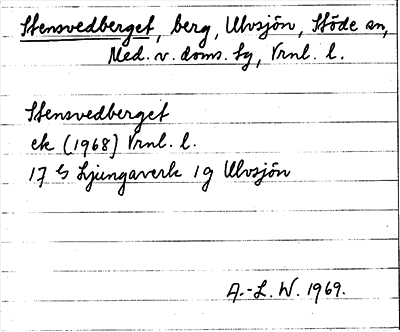 Stensvedberget, berg, Ulvsjön, Stöde sn,
Med. v. doms. tg, Vrnl. l.
Stensvedberget
ek (1968) Vrnl. l.
17 G Ljungaverk 1g Ulvsjön
A.-L. W. 1969.